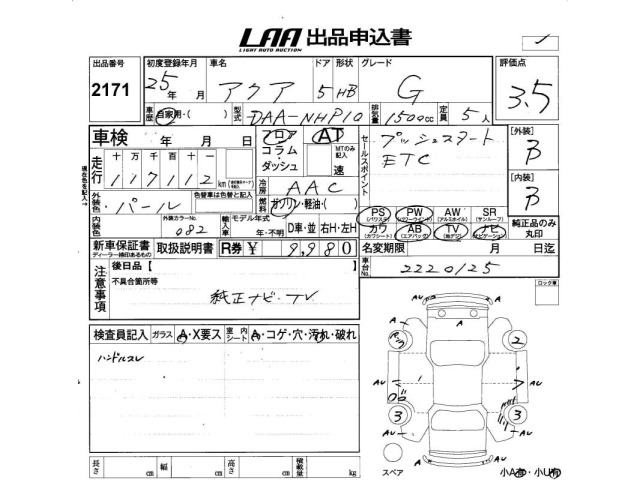 LAA 出品申込書
LIGHT AUTO AUCTION
出品番号 2171
初度登録年月 25年 月
車名 アクア
ドア 5 形状 HB
グレード G
評価点 3.5
車歴 自家用・( )
型式 DAA-NHP10
排気量 1500cc
定員 5人
車検 年 月 日
フロア コラム・ダッシュ
AT MTのみ記入 速
セールスポイント
プッシュスタート
ETC
[外装] B
[内装] B
走行 十万千百十一
117112 km
冷房 AAC
燃料 ガソリン・軽油・( )
現在色を記入
外装色 パール
色替車は色替と記入
内装色
外装カラーNo. 082
輸入車 モデル年式 年・不明 D車・並 右H・左H
PS (パワステ) PW (パワーウインド) AW (アルミホイル) SR (サンルーフ)
カワ (カワシート) AB (エアバッグ) TV (純デジ) ナビ (ナビゲーション)
純正品のみ丸印
新車保証書 取扱説明書 R券 ¥ 9,980
ディーラー捺印あるもの
名変期限 月 日迄
注意事項
後日品【 】
不具合箇所等
純正ナビ・TV
車台No. 2220125
ロック車
検査員記入 ガラス A・X要ス 室内シート A・コゲ・穴・汚れ・破れ
ハンドルスレ
A A
2
AU AU
3 3
AU AU
AU
スペア
小A有・小U有
長さ cm 幅 cm 高さ cm 積載量 kg